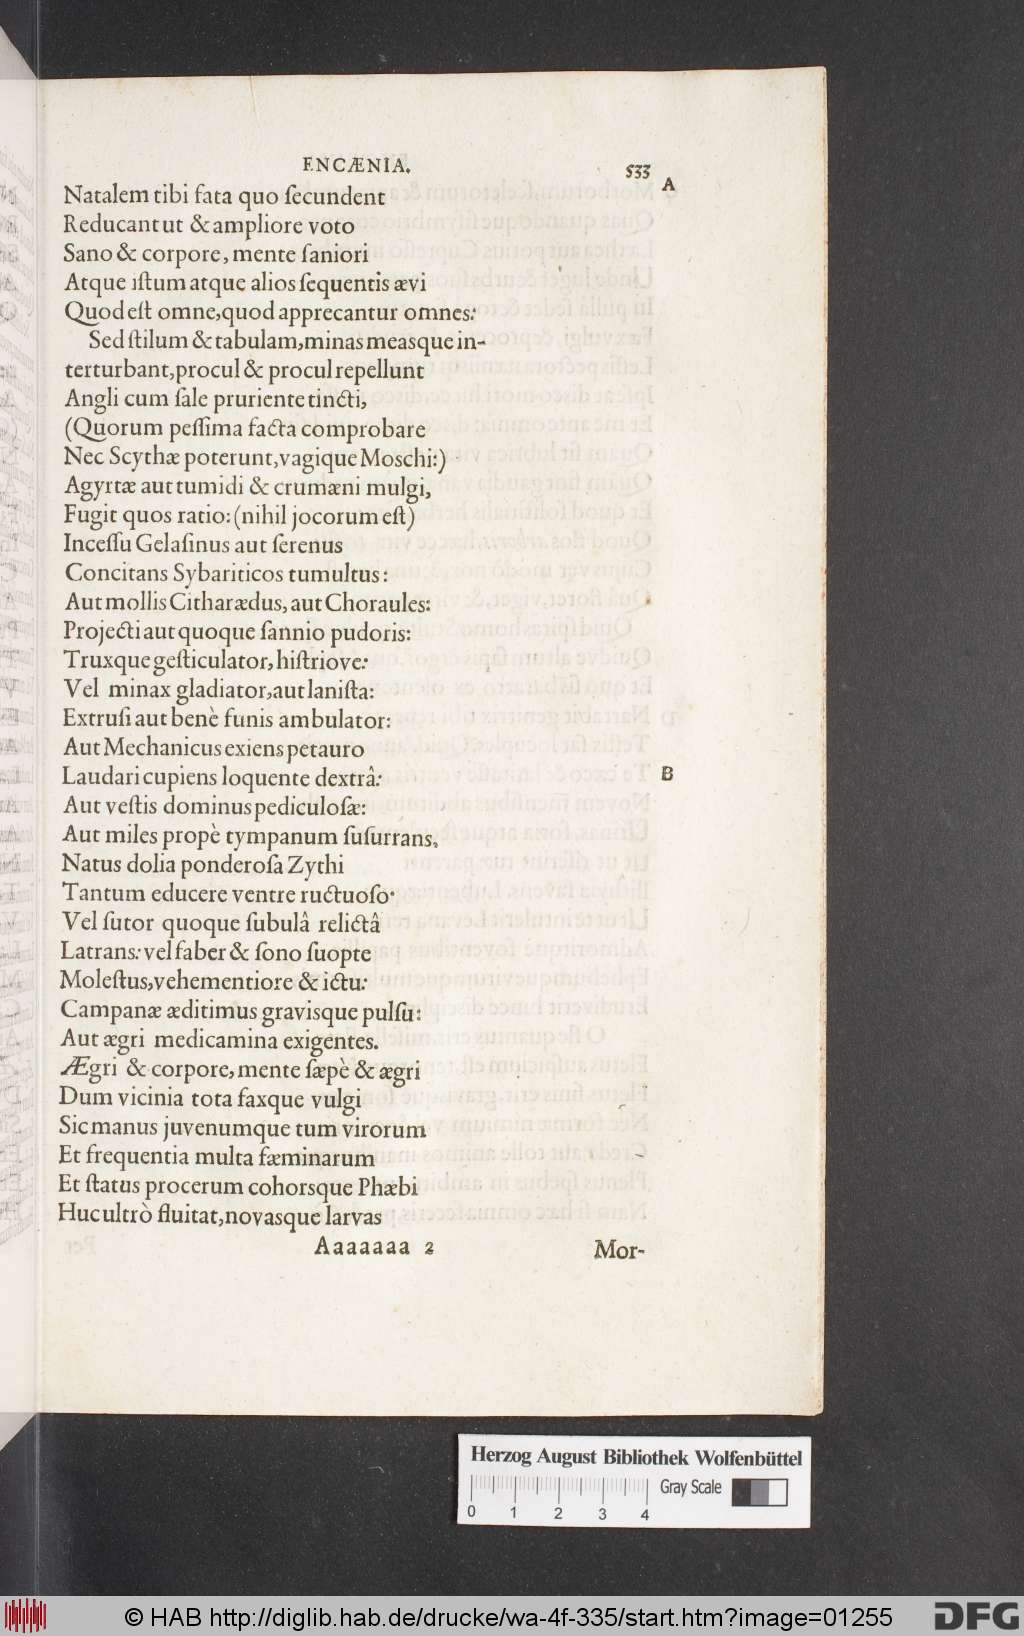 ENCÆNIA. 533
A
Natalem tibi fata quo ſecundent
Reducant ut & ampliore voto
Sano & corpore, mente ſaniori
Atque iſtum atque alios ſequentis ævi
Quod eſt omne, quod apprecantur omnes:
Sed ſtilum & tabulam, minas measque in-
terturbant, procul & procul repellunt
Angli cum ſale pruriente tincti,
(Quorum peſſima facta comprobare
Nec Scythæ poterunt, vagique Moschi:)
Agyrtæ aut tumidi & crumæni mulgi,
Fugit quos ratio: (nihil jocorum eſt)
Inceſſu Gelaſinus aut ſerenus
Concitans Sybariticos tumultus:
Aut mollis Citharædus, aut Choraules:
Projecti aut quoque ſannio pudoris:
Truxque geſticulator, hiſtriove:
Vel minax gladiator, aut laniſta:
Extruſi aut benè funis ambulator:
Aut Mechanicus exiens petauro
Laudari cupiens loquente dextrâ:
B
Aut veſtis dominus pediculoſæ:
Aut miles propè tympanum ſuſurrans,
Natus dolia ponderoſa Zythi
Tantum educere ventre ructuoſo·
Vel ſutor quoque ſubulâ relictâ
Latrans: vel faber & ſono ſuopte
Moleſtus, vehementiore & ictu:
Campanæ æditimus gravisque pulſu:
Aut ægri medicamina exigentes.
Ægri & corpore, mente ſæpè & ægri
Dum vicinia tota faxque vulgi
Sic manus juvenumque tum virorum
Et frequentia multa fæminarum
Et ſtatus procerum cohorsque Phæbi
Huc ultrò fluitat, novasque larvas
Aaaaaaa 2 Mor-
Herzog August Bibliothek Wolfenbüttel
Gray Scale
0 1 2 3 4
© HAB http://diglib.hab.de/drucke/wa-4f-335/start.htm?image=01255
DFG